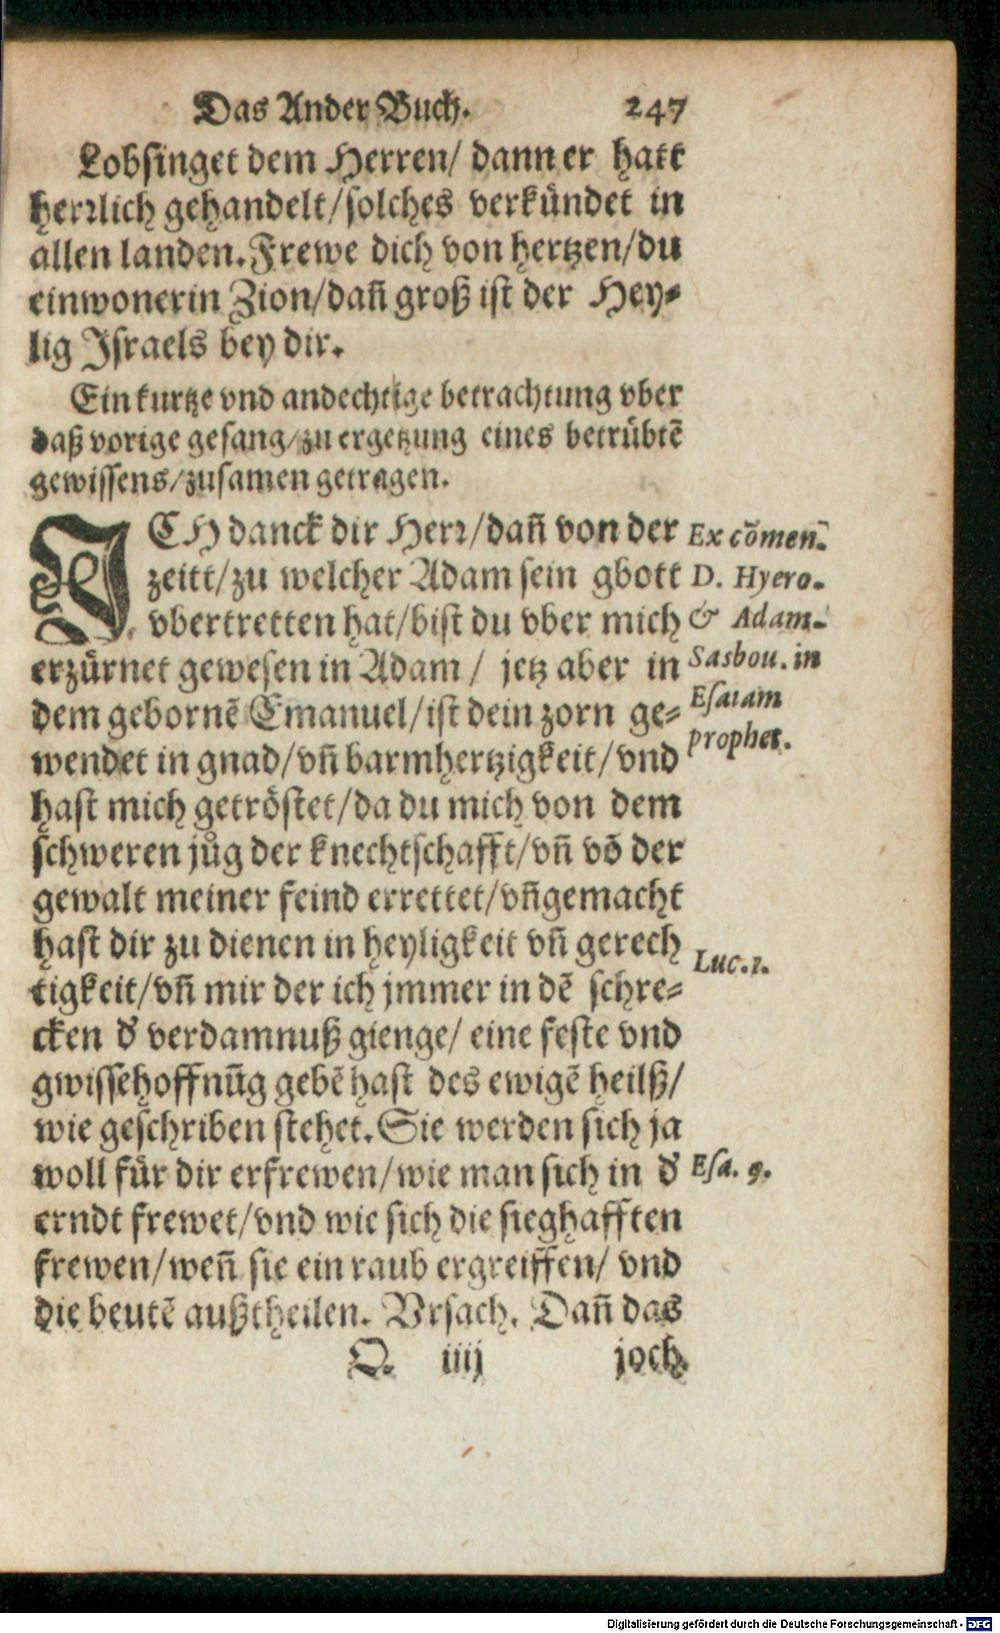 Das Ander Buch. 247
Lobsinget dem Herren/ dann er hatt
herꝛlich gehandelt/solches verkündet in
allen landen. Frewe dich von hertzen/du
einwonerin Zion/dañ groß ist der Hey⸗
lig Israels bey dir.
Ein kurtze vnd andechtige betrachtung vber
daß vorige gesang/zu ergetzung eines betrübtē
gewissens/zusamen getragen.
ICH danck dir Herꝛ/dañ von der
zeitt/zu welcher Adam sein gbott
vbertretten hat/bist du vber mich
erzürnet gewesen in Adam / jetz aber in
dem gebornē Emanuel/ist dein zorn ge⸗
wendet in gnad/vñ barmhertzigkeit/vnd
hast mich getröstet/da du mich von dem
schweren jůg der knechtschafft/vñ võ der
gewalt meiner feind errettet/vñgemacht
hast dir zu dienen in heyligkeit vñ gerech
tigkeit/vñ mir der ich jmmer in dē schre⸗
cken d' verdamnuß gienge/ eine feste vnd
gwissehoffnũg gebē hast des ewigē heilß/
wie geschriben stehet. Sie werden sich ja
woll für dir erfrewen/wie man sich in d'
erndt frewet/vnd wie sich die sieghafften
frewen/weñ sie ein raub ergreiffen/ vnd
die beutē außtheilen. Vrsach. Dañ das
Q. iiij joch.
Ex cōmen.
D. Hyero.
& Adam.
Sasbou. in
Esaiam
prophet.
Luc. 1.
Esa. 9.
Digitalisierung gefördert durch die Deutsche Forschungsgemeinschaft - DFG